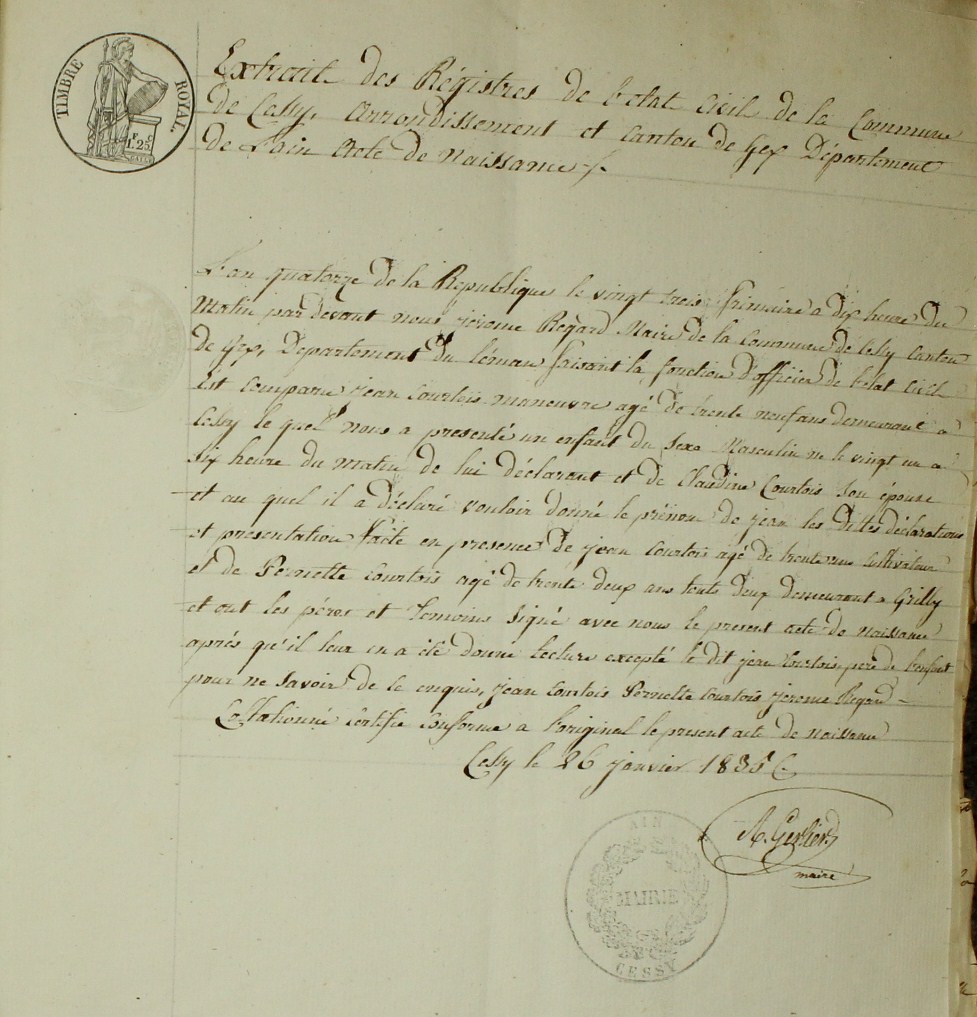 TIMBRE ROYAL
F C
1. 25
Extrait des Régistres de l'etat Civil de la Commune
de Cessy, Arrondissement et Canton de Gex Département
de L'ain Acte de Naissance
L'an quatorze de la Republique le vingt trois frimaire a dix heure du
Matin par devant nous jérome Regard Maire de la Commune de Cessy Canton
de Gex, Departement du Leman faisant la fonction D'officier de l'etat Civil
Est Comparu jean Courtois manœuvre agé de trente neuf ans demeurant a
Cessy le quel nous a presenté un enfant du Sexe Masculin né le vingt un a
Six heure du matin de lui déclarant et de Claudine Courtois Son épouse
et au quel il a déclaré vouloir donné le prénom de jean les Dites déclarations
et présentation faite en presence de jean Courtois agé de trente un Cultivateur
et de Pernette Courtois agé de trente deux ans touts deux demeurant a Grilly
et ont les pères et temoins Signé avec nous le present acte de Naissance
aprés qu'il leur en a été donné lecture excepté le dit jean Courtois père de l'enfant
pour ne Savoir de ce enquis, jean Courtois Pernette Courtois jerome Regard
Collationné Certifié Conforme a l'original le present acte de Naissance
Cessy le 26 janvier 1836
A. Gerlier
maire
AIN
MAIRIE
DE
CESSY